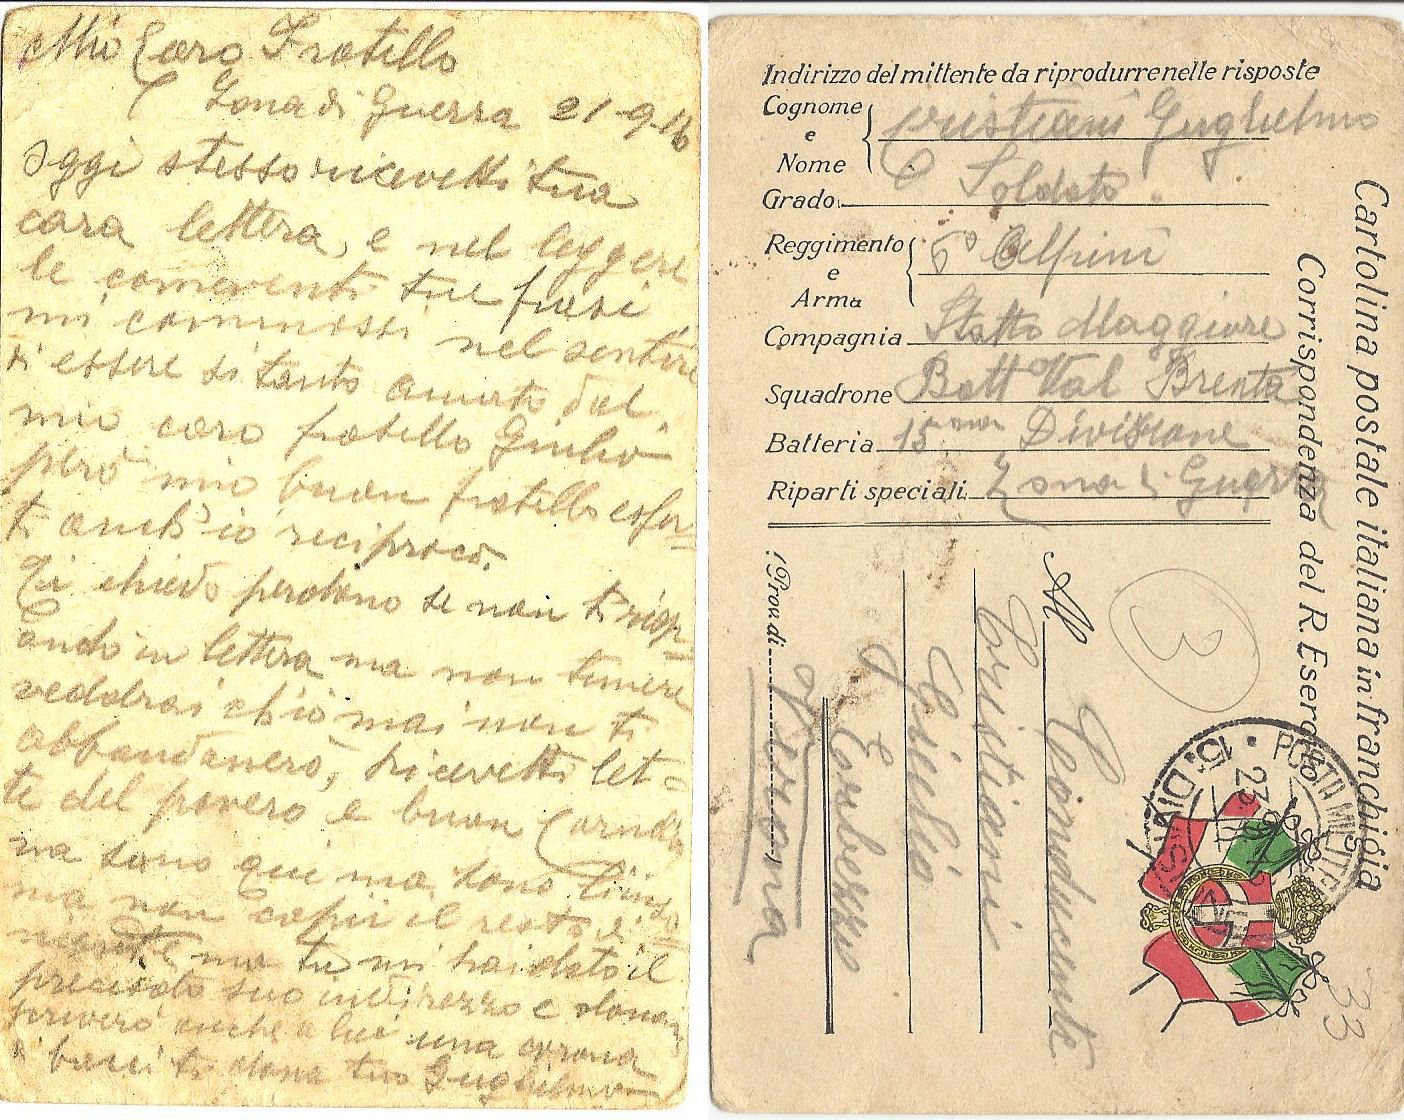 Mio Caro Fratello
Zona di Guerra 21-9-16
Oggi stesso ricevetti tua
cara lettera, e nel leggere
le comoventi tue frasi
mi commossi nel sentire
di essere si tanto amato dal
mio caro fratello Giulio
però mio buon fratello
ti anch'io reciproco.
Ti chiedo perdono se non ti risp
ondo in lettera ma non temere
veddrai ch'io mai non ti
abbandonerò, ricevetti let=
te del povero e buon
ma sono qui ma sono
ma non capii il resto
ma tu mi hai dato il
preciso suo indirezzo e
scriverò anche a lui una corona
di baci ti dona tuo Guglielmo
Indirizzo del mittente da riprodurre nelle risposte
Cognome e Nome Cristiani Guglielmo
Grado Soldato
Reggimento e Arma 6° Alpini
Compagnia Statto Maggiore
Squadrone Batt Val Brenta
Batteria 15 Divisione
Riparti speciali Zona di Guerra
Cartolina postale italiana in franchigia
Corrispondenza del R. Esercito
Al Conducente
Cristiani
Giulio
(Prov. di Verona)
3
POSTA MILITARE
15. DIVIS
23
33